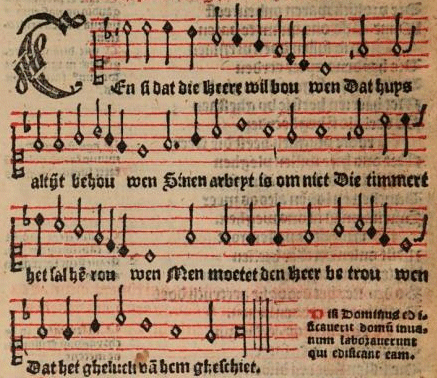 En si dat die Heere wil bou wen Dat huys
altijt behou wen Sinen arbeyt is om niet Die timmert
het sal hē rou wen Men moetet den heer be trou wen
Dat het gheluck vā hem gheschiet.
Nisi Dominus edi
ficaverit domū inua-
num laborauerunt
qui edificant eam.